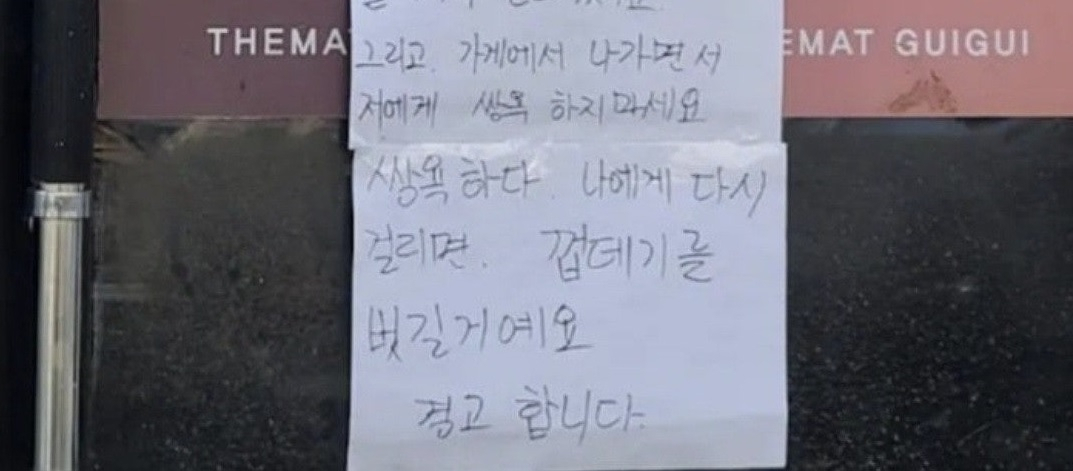 THEMA
EMAT GUIGUI
그리고. 가게에서 나가면서
저에게 쌍욕 하지마세요
쌍욕하다. 나에게 다시
걸리면. 껍데기를
벗길거예요
경고 합니다.